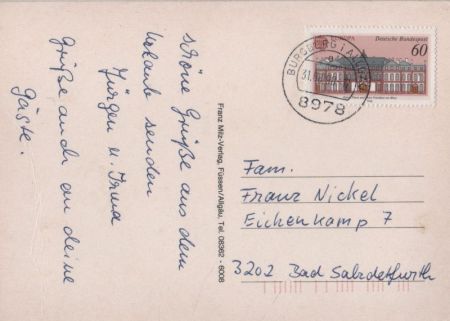 schöne Grüße aus dem
Urlaub senden
Jürgen u. Irma
Grüße auch an deine
Gäste.
Franz Milz-Verlag, Füssen/Allgäu, Tel. 08362 - 6008
EUROPA
Deutsche Bundespost
60
BURGBERG i. ALLGÄU
8978
Fam.
Franz Nickel
Eichenkamp 7
3202 Bad Salzdetfurth